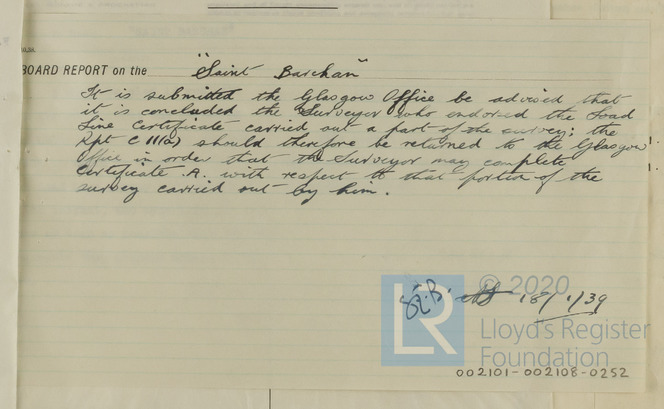 BOARD REPORT on the "Saint Barchan"
It is submitted the Glasgow Office be advised that
it is concluded the Surveyor who endorsed the Load
Line Certificate carried out a part of the survey; the
Rpt C 11(a) should therefore be returned to the Glasgow
Office in order that the Surveyor may complete
Certificate A. with respect to that portion of the
survey carried out by him.
18/1/39
© 2020
LR
Lloyd's Register
Foundation
002101-002108-0252